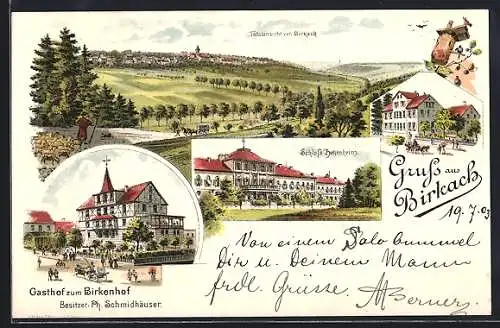 Totalansicht von Birkach
Schloß Hohenheim
Gruß aus
Birkach
19.7.03
Von einem Solo bummel
Dir u. Deinem Mann
frdl. Grüsse.
Gasthof zum Birkenhof
Besitzer: Ph. Schmidhäuser.